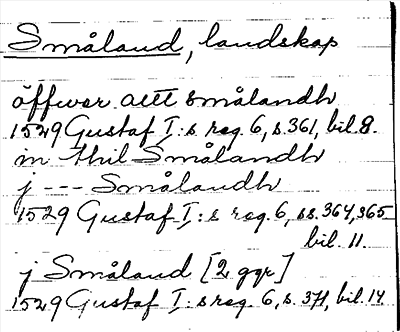 Småland, landskap
öffwer alltt Smålandh
1529 Gustaf I:s reg. 6, s. 361, bil. 8.
in thil Smålandh
j --- Smålandh
1529 Gustaf I:s reg. 6, ss. 364, 365
bil. 11.
j Småland [2 ggr]
1529 Gustaf I:s reg. 6, s. 371, bil. 14